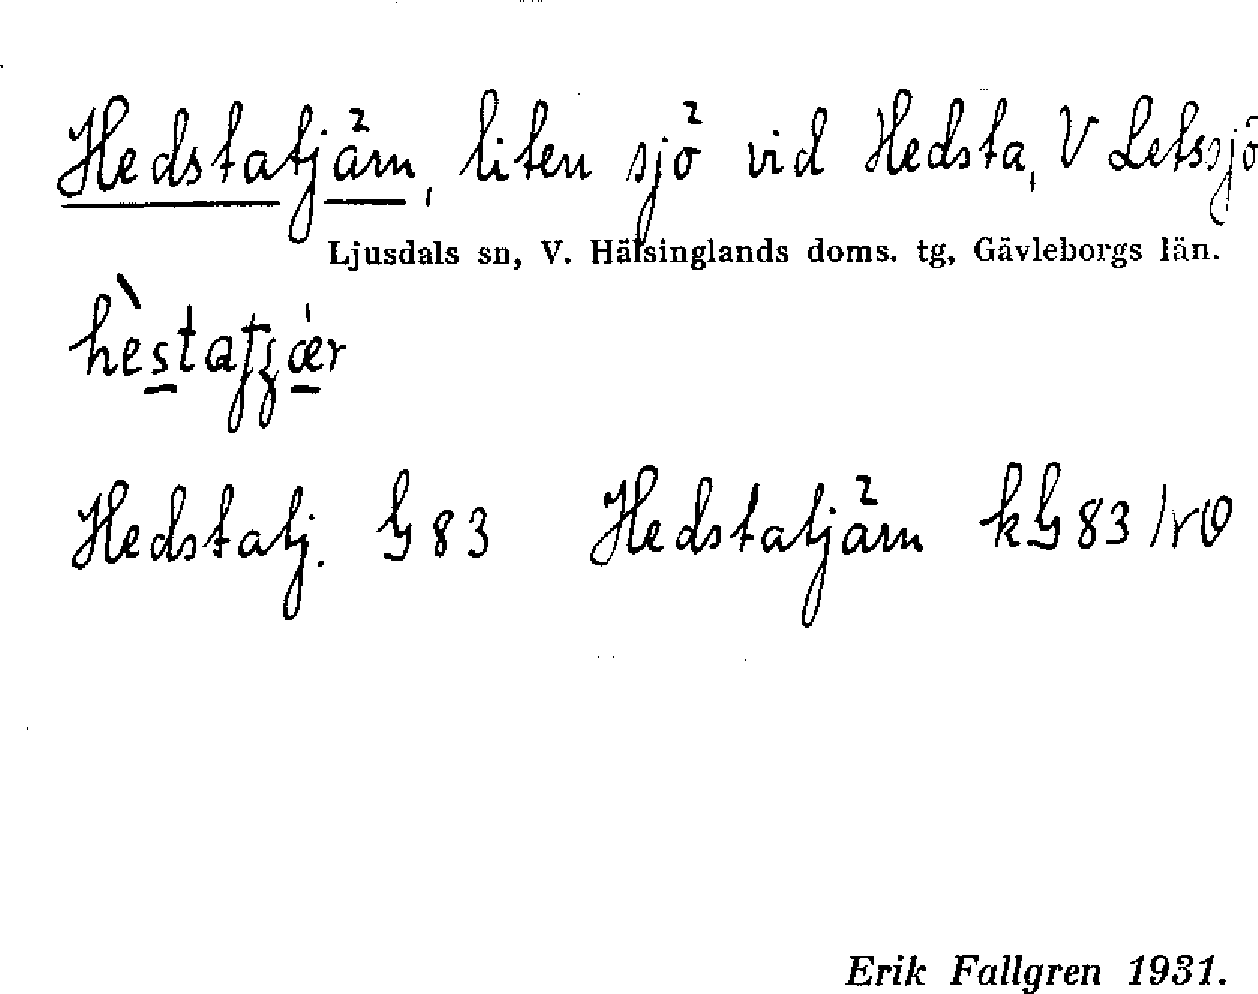 Hedstatjärn, liten sjö vid Hedsta, V Letssjö
Ljusdals sn, V. Hälsinglands doms. tg, Gävleborgs län.
hèstatjær
Hedstatj. G 83 Hedstatjärn kG 83 /rO
Erik Fallgren 1931.